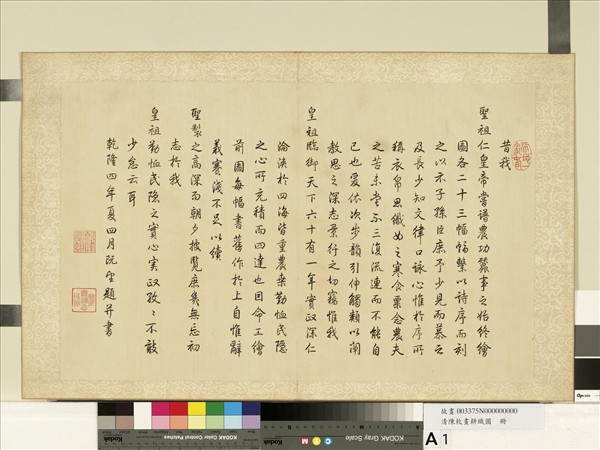 昔我
聖祖仁皇帝嘗譜農功蠶事之始終繪
圖各二十三幅幅繫以詩序而刻
之以示子孫臣庶予少見而慕之
及長少知文律口詠心惟於序所
稱衣帛思織女之寒食粟念農夫
之苦未嘗不三復流連而不能自
已也爰依次步韻引伸觸類以闡
敷思之深志景行之切竊惟我
皇祖臨御天下六十有一年實政深仁
淪浹於四海皆重農桑勤恤民隱
之心所充積而四達也因命工繪
前圖每幅書舊作於上自惟辭
義蹇淺不足以續
聖製之高深而朝夕披覽庶幾無忘初
志於我
皇祖勤恤民隱之實心實政孜孜不敢
少怠云耳
乾隆四年夏四月既望題并書
故畫 003375N000000000
清陳枚畫耕織圖 冊
A 1
KODAK Color Control Patches
KODAK Gray Scale